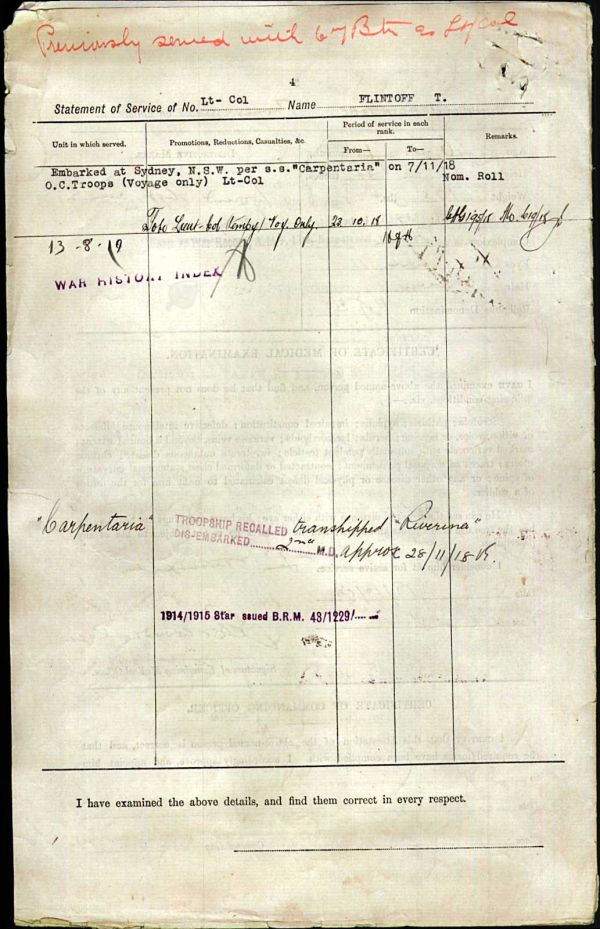 Previously served with 67 Btn as Lt/Col
4
Statement of Service of No. Lt- Col Name FLINTOFF T.
Unit in which served.
Promotions, Reductions, Casualties, &c.
Period of service in each rank.
From—
To—
Remarks.
Embarked at Sydney, N.S.W. per s.s."Carpentaria" on 7/11/18
O.C.Troops (Voyage only) Lt-Col Nom. Roll
To be Lieut-Col Tempy/Voy. Only. 23 10 18
13 -8- 19
WAR HISTORY INDEX
"Carpentaria" TROOPSHIP RECALLED transhipped "Riverina"
DIS-EMBARKED 2nd M.D. approx 28/11/18
1914/1915 Star issued B.R.M. 43/1229/
I have examined the above details, and find them correct in every respect.